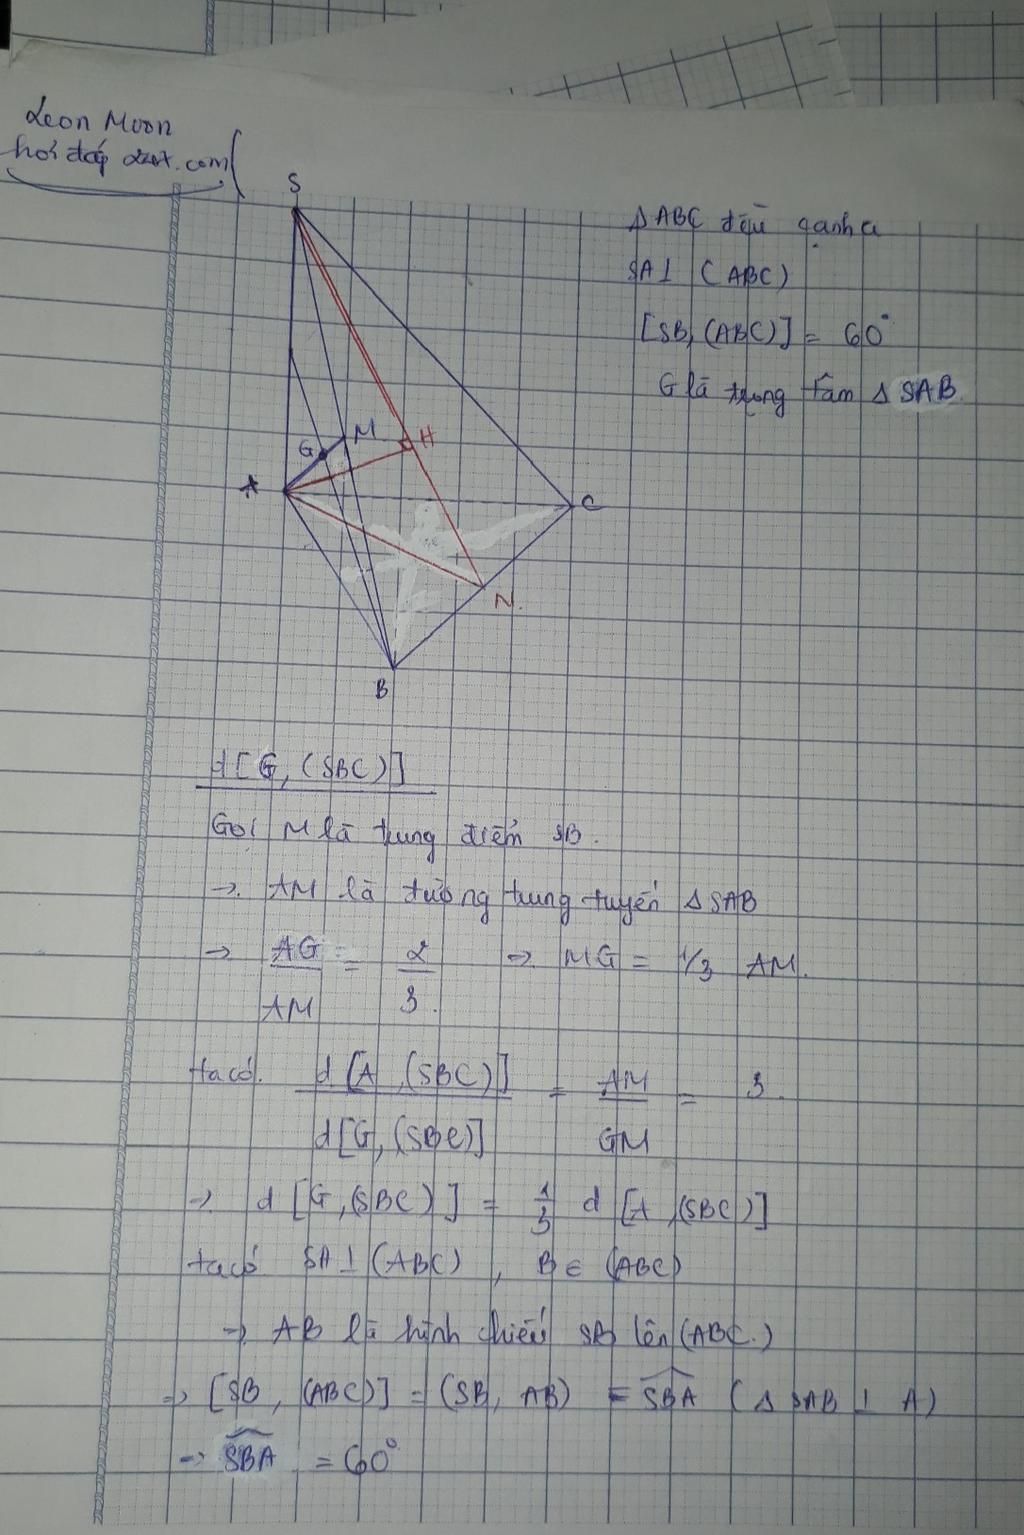 Leon Moon
hỏi đáp 247.com
S
ΔABC đều cạnh a
SA ⊥ (ABC)
[SB, (ABC)] = 60°
G là trọng tâm Δ SAB
M
H
G
A
C
N.
B
d[G, (SBC)]
Gọi M là trung điểm SB.
→ AM là đường trung tuyến Δ SAB
→ AG/AM = 2/3. → MG = 1/3 AM.
ta có. d[A, (SBC)]/d[G, (SBC)] = AM/GM = 3.
→ d[G, (SBC)] = 1/3 d[A, (SBC)]
ta có SA ⊥ (ABC), B ∈ (ABC)
→ AB là hình chiếu SB lên (ABC.)
→ [SB, (ABC)] = (SB, AB) = SBA (Δ SAB ⊥ A)
→ SBA = 60°